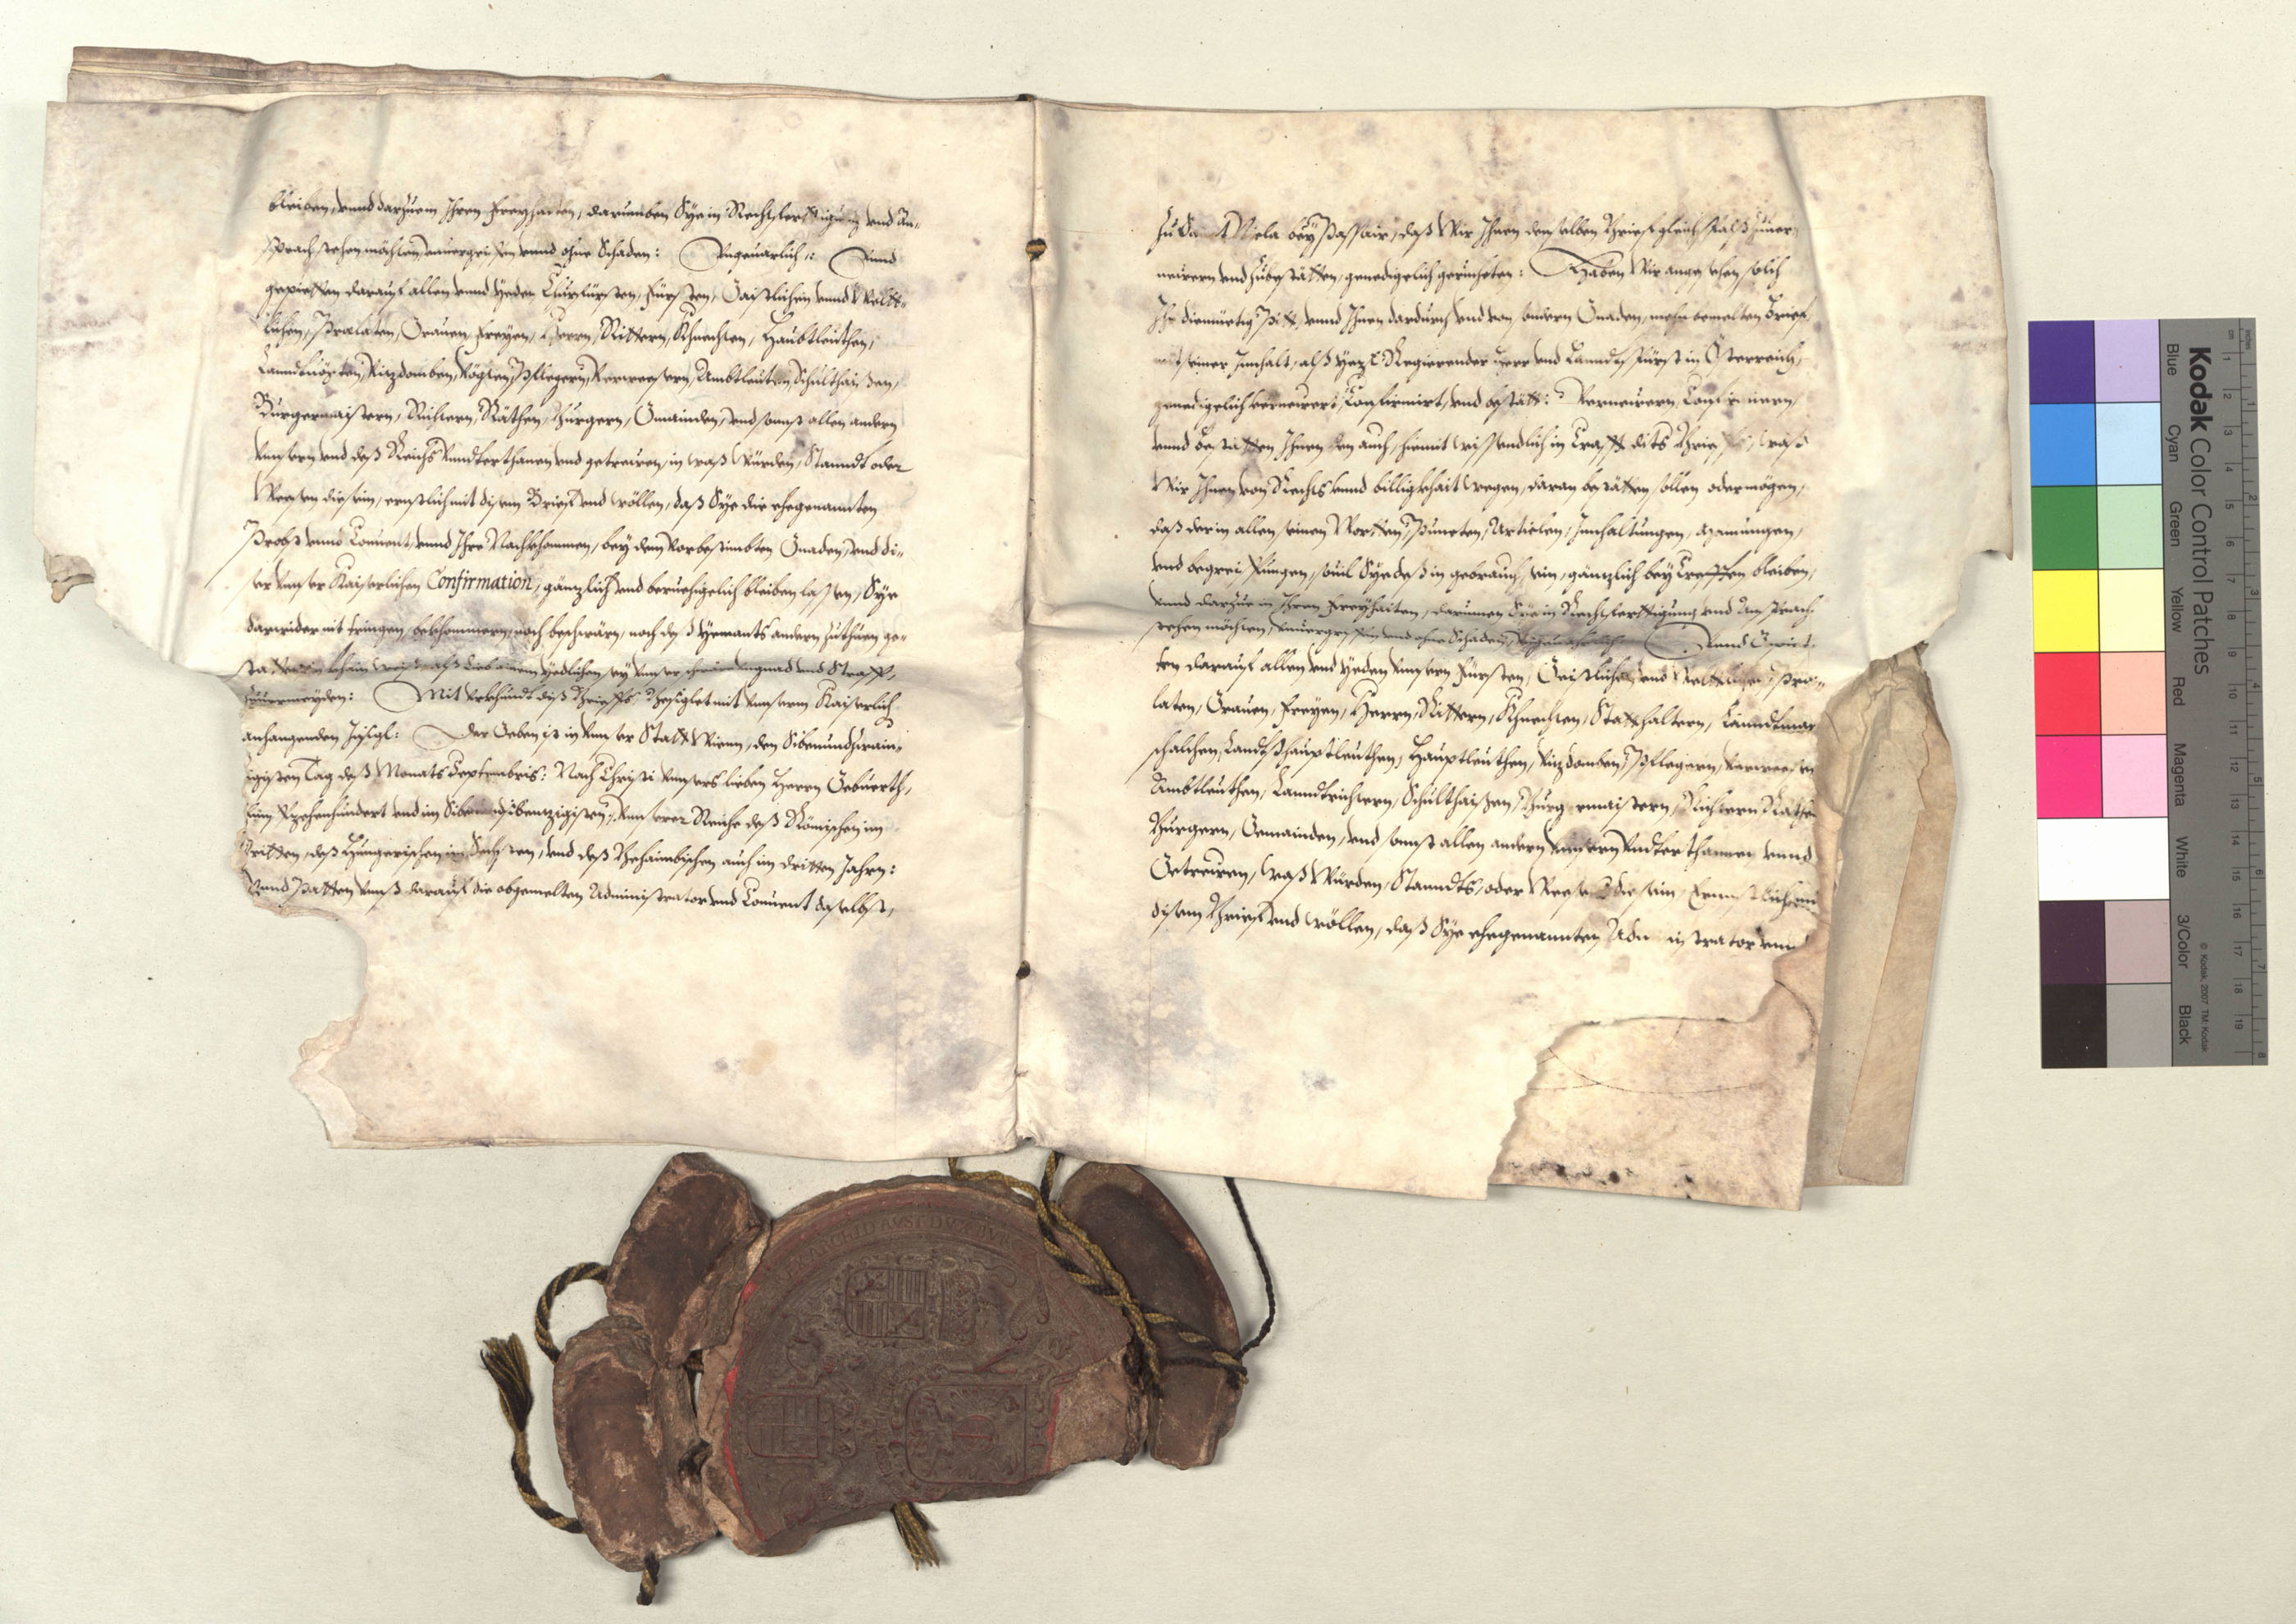 bleiben, vnnd darzuem Ihren Freyhaiten, darumben Sye in Rechtfertigung vnd An„
sprach stehen möchten, vnuergriffen vnnd ohne Schaden: Vngeuarlich: Vnnd
gepietten darauf allen vnnd yeden Churfürsten, Fürsten, Gaistlichen vnnd Weltt„
lichen, Prælaten, Grauen, Freyen, Herrn, Rittern, Khnechten, Haubtleuthen,
Lanndtuögten, Vizdomben, Vögten, Pflegern, Verwesern, Ambtleuten, Schulthaißen,
Burgermaistern, Richtern, Räthen, Burgern, Gmainden, vnd sonst allen andern
vnnsern vnd deß Reichs Vnnderthanen vnd getrewen, in waß Würden, Stanndt oder
Wesen die sein, ernstlich mit disem Brief vnd wöllen, daß Sye die ehegenannten
Probst vnnd Conuent, vnnd Ihre Nachkhommen, bey dem Vorbestimbten Gnaden, vnd di„
ser vnnser Kaiserlichen Confirmation, gänzlich vnd beruehigelich bleiben lassen, Sye
darwider nit tringen, bekhommern, noch beschwärn, noch deß yemants andern zuthuen ge„
statten, in khain weiß, alß lieb ainem yedlichen sey vnnser schwäre vngnad vnd Straff,
zuuermeyden: Mit Vrkhundt diß Brieffs, Besiglet mit vnnserm Kaiserlich
anhangenden Insigl: Der Geben ist in vnnser Statt Wienn, den Sibenundzwain„
zigisten Tag deß Monats Septembris: Nach Christi vnnsers lieben Herrn Geburth,
fünfzehenhundert vnd im Sibenundsibentzigisten, Vnnserer Reiche deß Römischen im
dritten, deß Hungerischen im Sechsten, vnd deß Behaimbischen auch im dritten Jahrn:
Vnnd Patten vnnß darauf die obgemelten Administrator vnd Conuent daselbst,
zu Niela bey Passaw, daß Wir Ihnen denselben Brief gleichfalß zuuer
neuern vnd zubestätten, genedigelich geruheten: Haben Wir angesehen solch
Ihr diemüetig Pitt, vnnd Ihnen dardurch vnd von sondern Gnaden, mehr bemelten Brief,
mit seiner Innhalt, alß yezt Regierender Herr vnd Lanndtsfürst in Österreich,
genedigelich verneuert, Confirmirt, vnd bestätt: Verneuern, Confirmiern,
vnnd bestätten Ihnen den auch, hiemit wissendlich in Crafft dits Brieffs, waß
Wir Ihnen von Rechts vnnd billigkhait wegen, daran bestätten sollen oder mögen,
daß der in allen seinen Wortten, Puncten, Articlen, Innhaltungen, Mainungen,
vnd begreiffungen, souil Sye deß in gebrauch sein, gänzlich bey Crefften bleiben,
vnnd darzue in Ihren Freyhaiten, darumen Sye in Rechtfertigung vnd Ansprach
stehen möchten, vnuergriffen vnd ohne Schaden, Vngeuahrlich: Vnnd Gepiet„
ten darauf allen vnd yeden vnnsern Fürsten, Geistlichen vnd Weltlichen, Præ„
laten, Grauen, Freyen, Herrn, Rittern, Khnechten, Statthaltern, Lanndtmar
schalchen, Landtßhauptleuthen, Hauptleuthen, Vizdomben, Pflegern, Verwesern
Ambtleuthen, Lanndtrichtern, Schulthaißen, Burgermaistern, Richtern, Räthen
Burgern, Gemainden, vnd sonst allen andern vnnsern Vndterthannen vnnd
Getreuen, waß Würden, Stanndts, oder Wesens die sein, Ernnstlich mit
disem Brief vnd wöllen, daß Sye ehegenannten Administrator vnnd